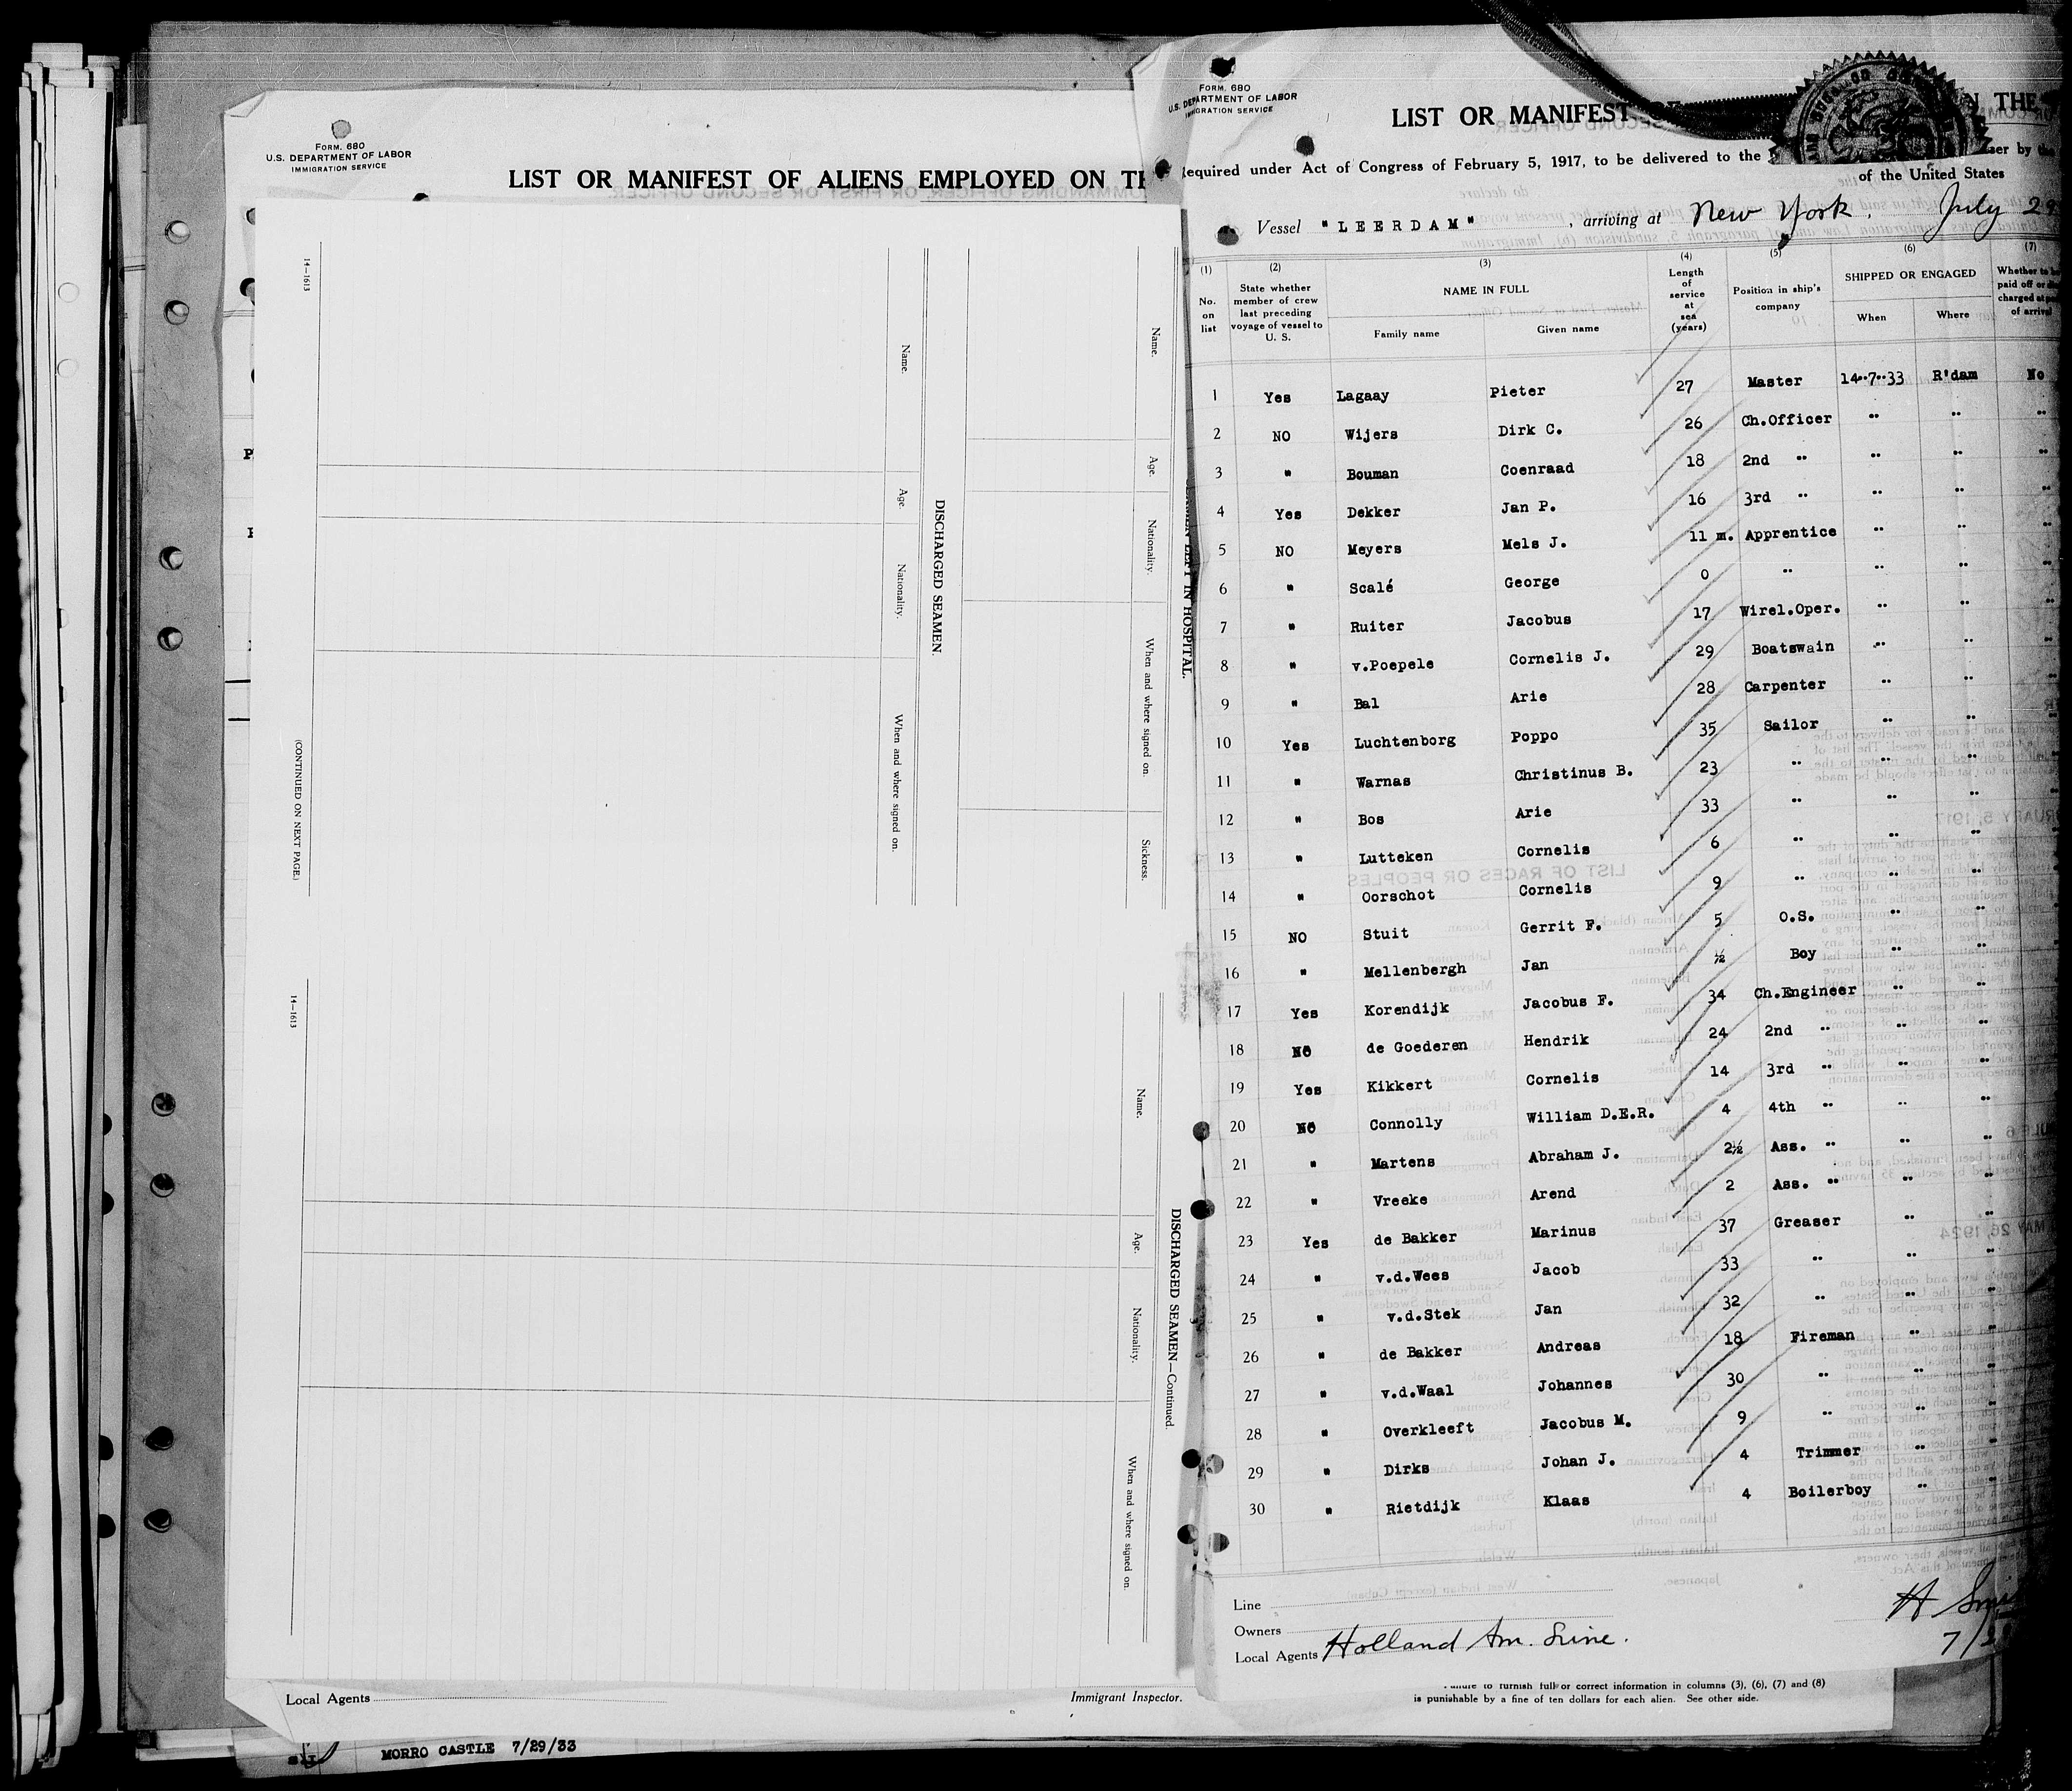 FORM. 680
U.S. DEPARTMENT OF LABOR
IMMIGRATION SERVICE
LIST OR MANIFEST OF ALIENS EMPLOYED ON TH
14—1613
(CONTINUED ON NEXT PAGE.)
Name.
Age.
Nationality.
When and where signed on.
DISCHARGED SEAMEN.
Name.
Age.
Nationality.
When and where signed on.
Sickness.
LEFT IN HOSPITAL.
14—1613
Name.
Age.
Nationality.
When and where signed on.
DISCHARGED SEAMEN—Continued.
Local Agents
Immigrant Inspector.
MORRO CASTLE 7/29/33
FORM. 680
U.S. DEPARTMENT OF LABOR
IMMIGRATION SERVICE
LIST OR MANIFEST THE
Required under Act of Congress of February 5, 1917, to be delivered to the by the
of the United States
Vessel "LEERDAM", arriving at New York. July 29
(1) (2) (3) (4) (5) (6) (7)
No. on list
State whether member of crew last preceding voyage of vessel to U. S.
NAME IN FULL
Family name Given name
Length of service at sea (years)
Position in ship's company
SHIPPED OR ENGAGED
When Where
Whether to paid off or charged at of arrival
1 Yes Lagaay Pieter 27 Master 14-7-33 R'dam No
2 NO Wijers Dirk C. 26 Ch.Officer " " "
3 " Bouman Coenraad 18 2nd " " " "
4 Yes Dekker Jan P. 16 3rd " " " "
5 NO Meyers Mels J. 11 m. Apprentice " " "
6 " Scalé George 0 " " " "
7 " Ruiter Jacobus 17 Wirel.Oper. " " "
8 " v.Poepele Cornelis J. 29 Boatswain " " "
9 " Bal Arie 28 Carpenter " " "
10 Yes Luchtenborg Poppo 35 Sailor " "
11 " Warnas Christinus B. 23 " " "
12 " Bos Arie 33 " " "
13 " Lutteken Cornelis 6 " " "
14 " Oorschot Cornelis 9 " " "
15 NO Stuit Gerrit F. 5 O.S. " "
16 " Mellenbergh Jan ½ Boy " "
17 Yes Korendijk Jacobus F. 34 Ch.Engineer " "
18 NO de Goederen Hendrik 24 2nd " " "
19 Yes Kikkert Cornelis 14 3rd " " "
20 NO Connolly William D.E.R. 4 4th " " "
21 " Martens Abraham J. 2½ Ass. " " "
22 " Vreeke Arend 2 Ass. " " "
23 Yes de Bakker Marinus 37 Greaser " "
24 " v.d.Wees Jacob 33 " " "
25 " v.d.Stek Jan 32 " " "
26 " de Bakker Andreas 18 Fireman " "
27 " v.d.Waal Johannes 30 " " "
28 " Overkleeft Jacobus M. 9 " " "
29 " Dirks Johan J. 4 Trimmer " "
30 " Rietdijk Klaas 4 Boilerboy " "
Line
Owners
Local Agents Holland Am. Line.
to furnish full or correct information in columns (3), (6), (7) and (8)
is punishable by a fine of ten dollars for each alien. See other side.